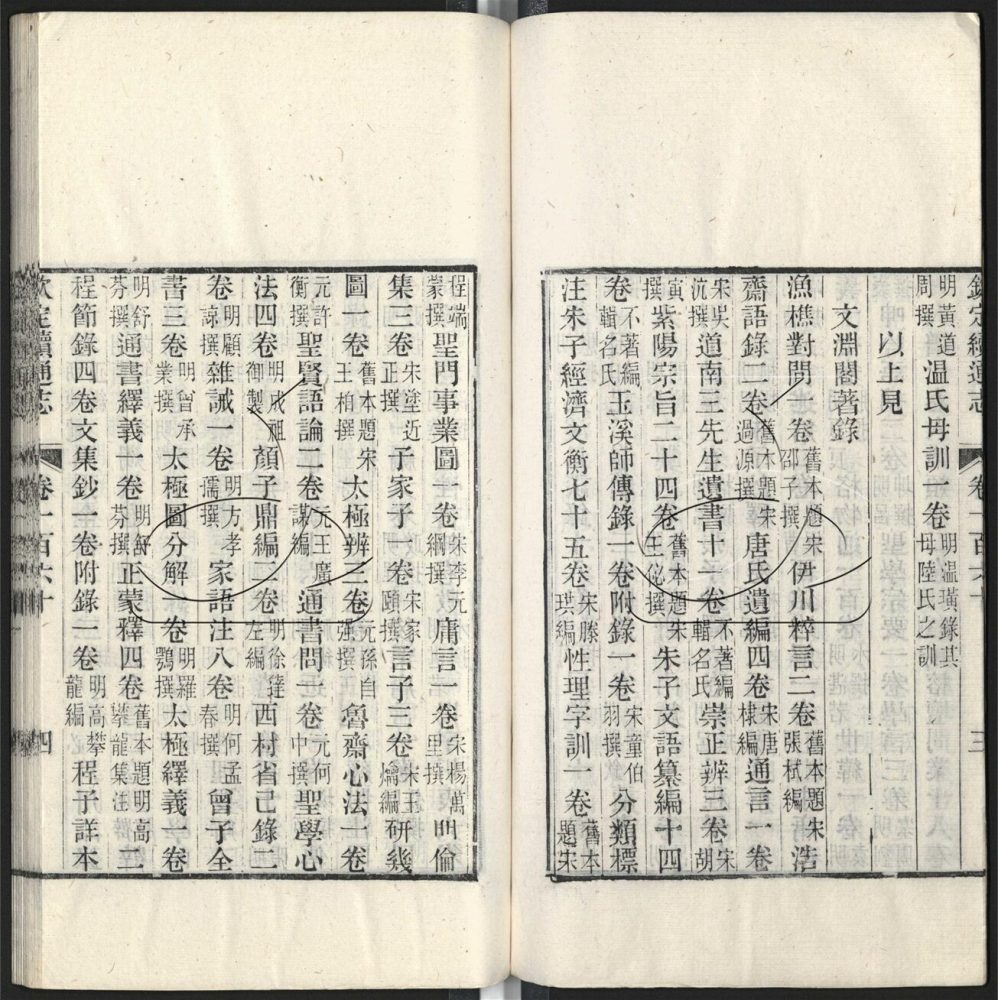 欽定續通志 卷一百六十 三
明黃道周撰溫氏母訓一卷明溫璜錄其母陸氏之訓
以上見
文淵閣著錄
漁樵對問一卷舊本題宋邵子撰伊川粹言二卷舊本題宋張栻編浩
齋語錄二卷舊本題宋過源撰唐氏遺編四卷宋唐棣編通言一卷
宋吳沆撰道南三先生遺書十一卷不著編輯名氏崇正辨三卷宋胡
寅撰紫陽宗旨二十四卷舊本題宋王佖撰朱子文語纂編十四
卷不著編輯名氏玉溪師傳錄一卷附錄一卷宋童伯羽撰分類標
注朱子經濟文衡七十五卷宋滕珙編性理字訓一卷舊本題宋
程端蒙撰聖門事業圖一卷宋李元綱撰庸言一卷宋楊萬里撰明倫
集三卷宋塗近正撰子家子一卷宋家頤撰言子三卷宋王爚編研幾
圖一卷舊本題宋王柏撰太極辨三卷元孫自強撰魯齋心法一卷
元許衡撰聖賢語論二卷元王廣謀編通書問一卷元何中撰聖學心
法四卷明成祖御製顏子鼎編二卷明徐達左編西村省己錄二
卷明顧諒撰雜誡一卷明方孝孺撰家語注八卷明何孟春撰曾子全
書三卷明曾承業撰太極圖分解一卷明羅鶚撰太極繹義一卷
明舒芬撰通書繹義一卷明舒芬撰正蒙釋四卷舊本題明高攀龍集注二
程節錄四卷文集鈔一卷附錄一卷明高攀龍編程子詳本
欽定續通志 卷一百六十 四